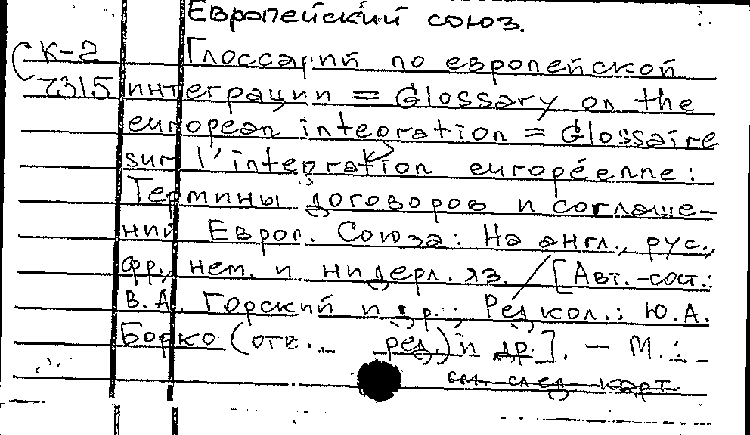 Европейский союз.
СК-2 Глоссарий по европейской
7315 интеграции = Glossary on the
european integration = Glossaire
sur l'integration européenne:
Термины договоров и соглаше-
ний Европ. Союза: На англ., рус.,
фр., нем. и нидерл. яз. / [Авт.-сост.:
В.А. Горский и др.; Редкол.: Ю.А.
Борко (отв. ред.) и др.]. - М.: -
см. след. карт.